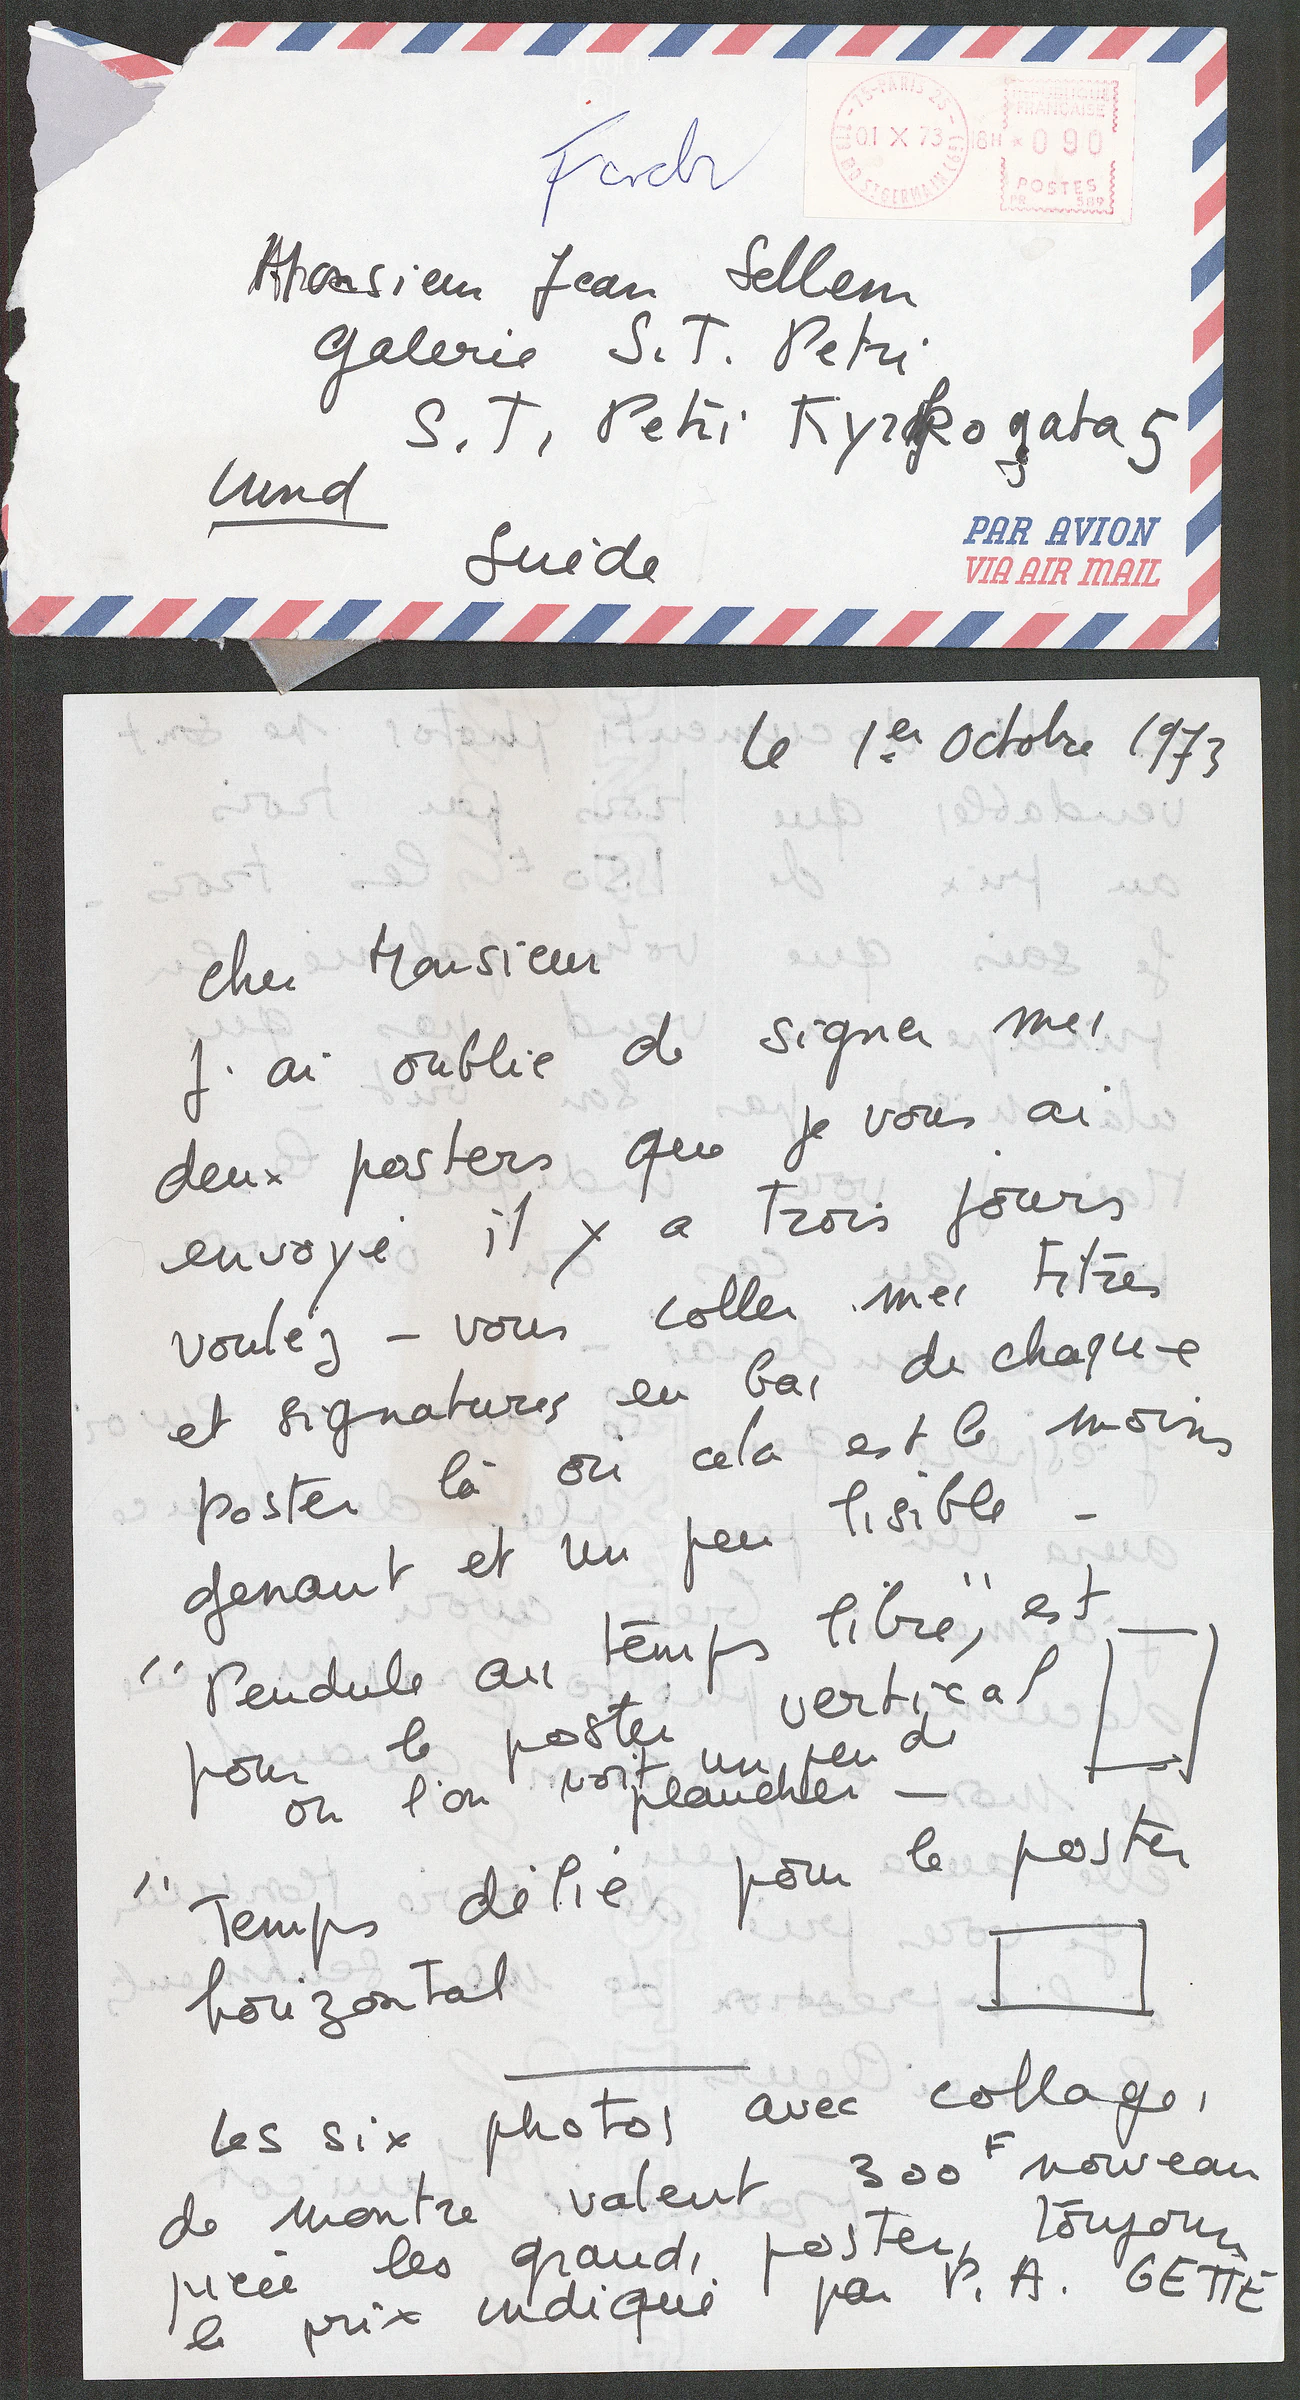 75-PARIS 25
01 X 73
BD ST GERMAIN (6e)
18H
REPUBLIQUE
FRANÇAISE
* 0 90
POSTES
PR 589
Monsieur Jean Sellem
Galerie S.T. Petri
S.T. Petri Kyrkogata 5
Lund
Suède
PAR AVION
VIA AIR MAIL
le 1er Octobre 1973
Cher Monsieur
J'ai oublié de signer mes
deux posters que je vous ai
envoyé il y a trois jours
voulez-vous coller mes titres
et signatures en bas de chaque
poster là où cela est le moins
genant et un peu lisible -
"Pendule au temps libre," est
pour le poster vertical
ou l'on voit un peu de
plancher -
"Temps délié pour le poster
horizontal
les six photos avec collages
de montre valent 300F nouveau
pièce les grands posters toujours
le prix indiqué par P.A. GETTE